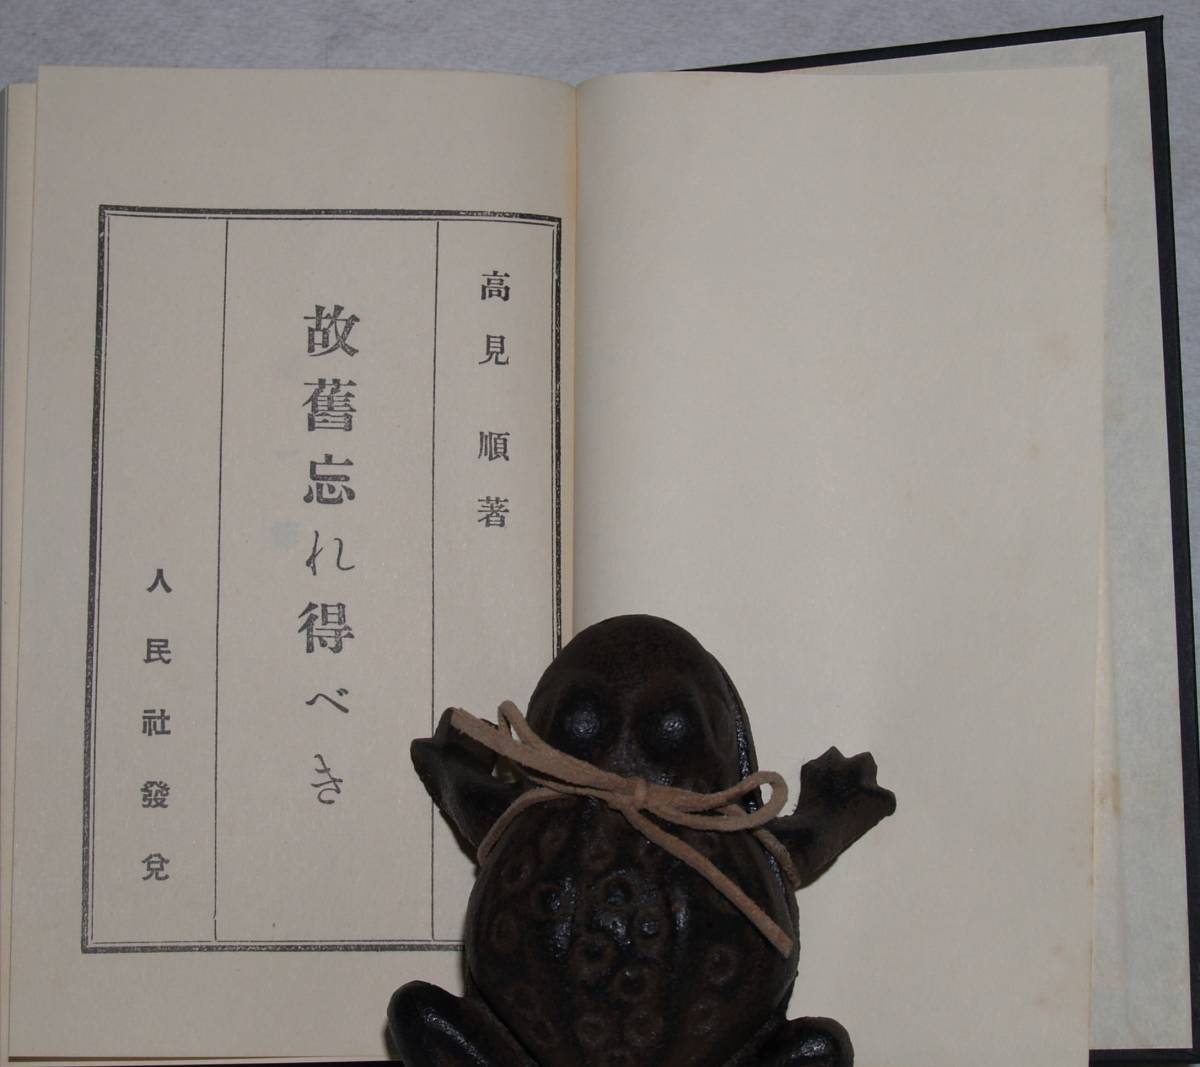 高見順著
故舊忘れ得べき
人民社發兌